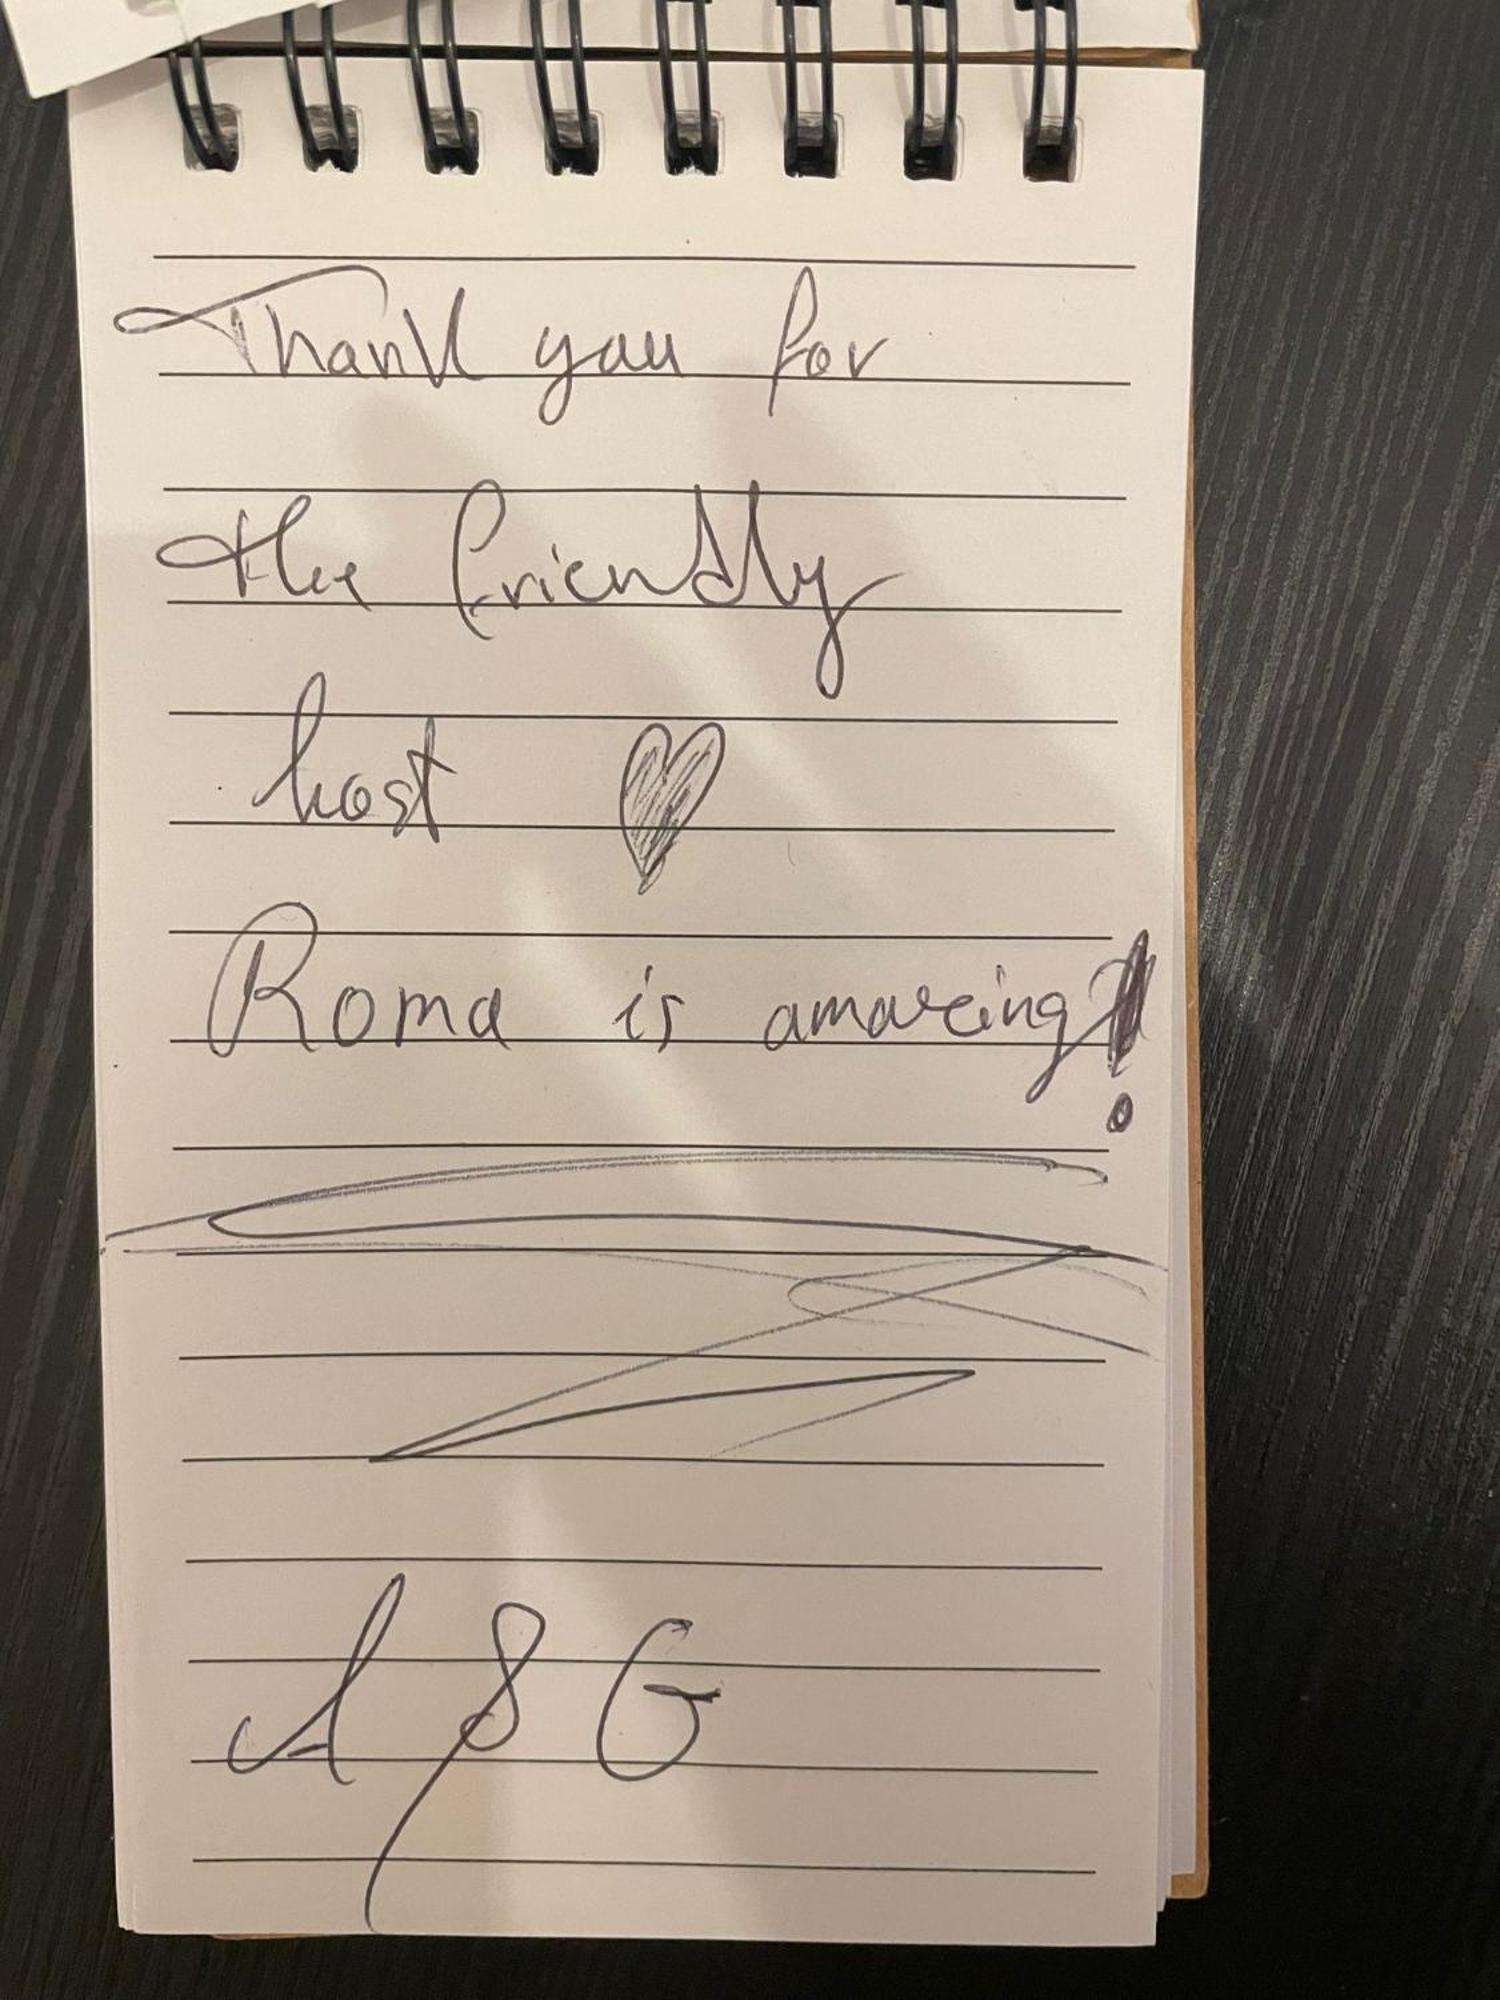 Thank you for
the friendly
host ♥
Roma is amazing!
A S G